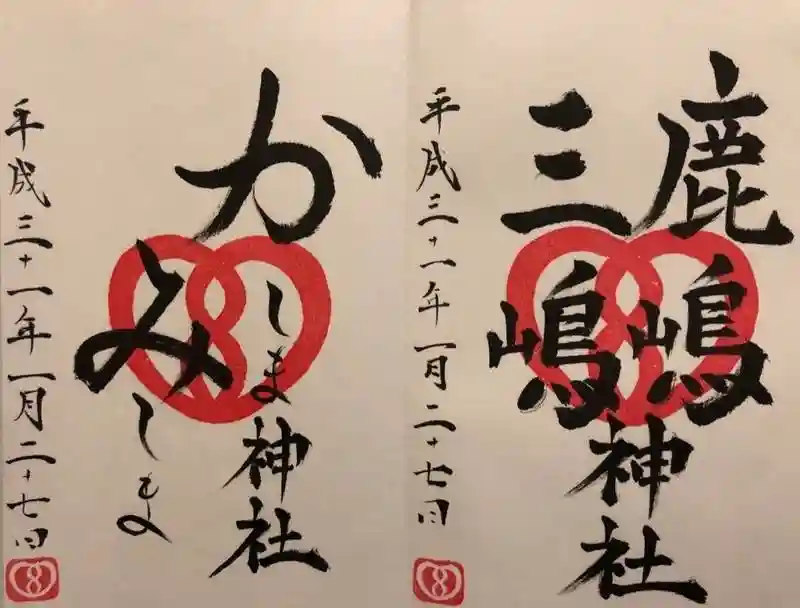 鹿嶋
三嶋
神社
平成三十一年一月二十七日
かしま神社
みしま
平成三十一年一月二十七日